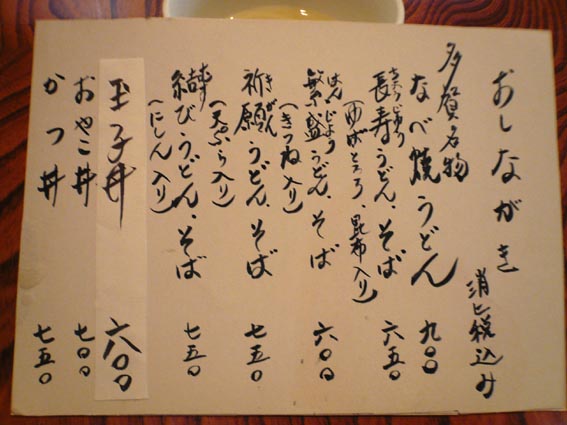 おしながき
消ヒ税込み
多賀名物
なべ焼うどん 九〇〇
ちょうじゅ
長寿うどん、そば 六五〇
(ゆばとろろ 昆布入り)
はんじょう
繁盛うどん、そば 六〇〇
(きつね入り)
きがん
祈願うどん、そば 七五〇
(天ぷら入り)
むすび
結びうどん、そば 七五〇
(にしん入り)
玉子丼 六〇〇
おやこ丼 七〇〇
かつ丼 七五〇